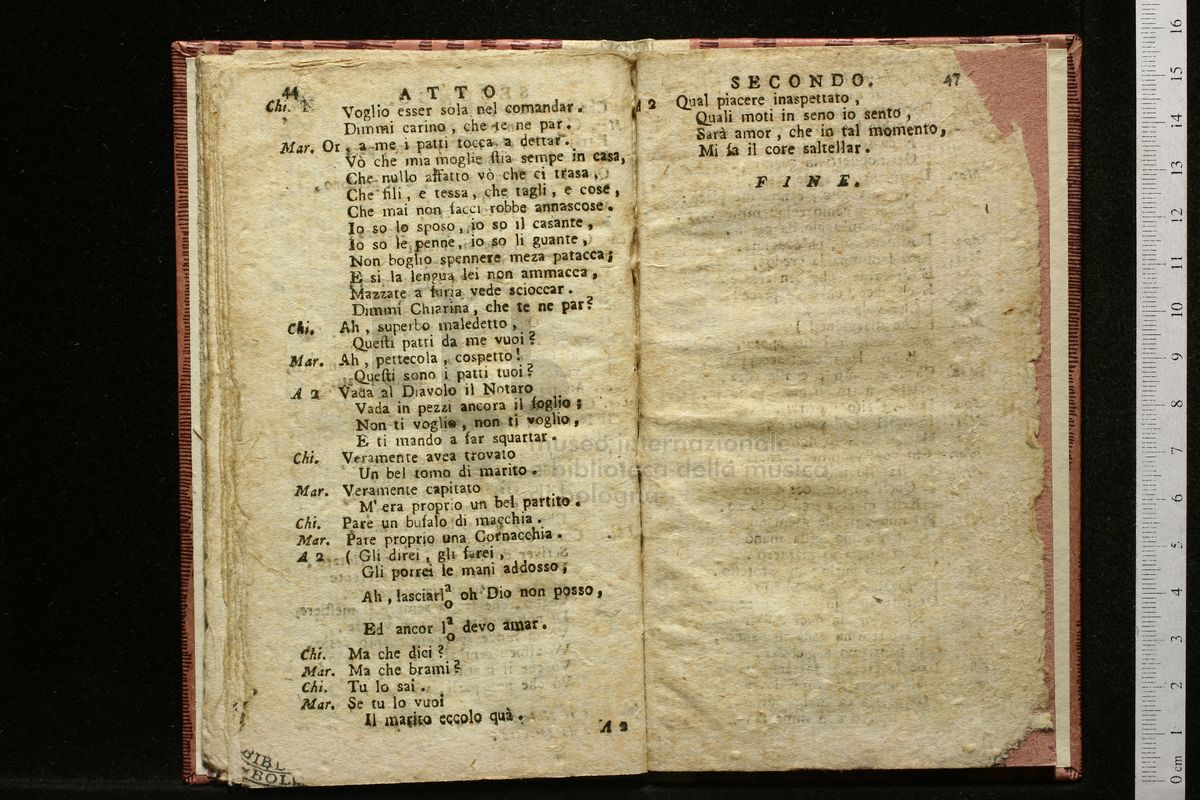 44
ATTO
Chi. Voglio esser sola nel comandar.
Dimmi carino, che te ne par.
Mar. Or, a me i patti tocca a dettar.
Vò che mia moglie ſtia sempe in casa,
Che nullo affatto vò che ci trasa,
Che fili, e tessa, che tagli, e cose,
Che mai non facci robbe annascose.
Io so lo sposo, io so il casante,
Io so le penne, io so li guante,
Non boglio spennere meza patacca;
E si la lengua lei non ammacca,
Mazzate a furia vede scioccar.
Dimmi Chiarina, che te ne par?
Chi. Ah, superbo maledetto,
Queſti patti da me vuoi?
Mar. Ah, pettecola, cospetto!
Queſti sono i patti tuoi?
A 2 Vada al Diavolo il Notaro
Vada in pezzi ancora il foglio;
Non ti voglio, non ti voglio,
E ti mando a far squartar.
Chi. Veramente avea trovato
Un bel tomo di marito.
Mar. Veramente capitato
M'era proprio un bel partito.
Chi. Pare un bufalo di macchia.
Mar. Pare proprio una Cornacchia.
A 2 (Gli direi, gli farei,
Gli porrei le mani addosso,
Ah, lasciarl a/o oh Dio non posso,
Ed ancor l a/o devo amar.
Chi. Ma che dici?
Mar. Ma che brami?
Chi. Tu lo sai.
Mar. Se tu lo vuoi
Il marito eccolo quà.
A 2
SECONDO.
47
A 2 Qual piacere inaspettato,
Quali moti in seno io sento,
Sarà amor, che in tal momento,
Mi fa il core saltellar.
FINE.
museo internazionale
e biblioteca della musica
di bologna
BIBL
BOL
0 cm 1 2 3 4 5 6 7 8 9 10 11 12 13 14 15 16